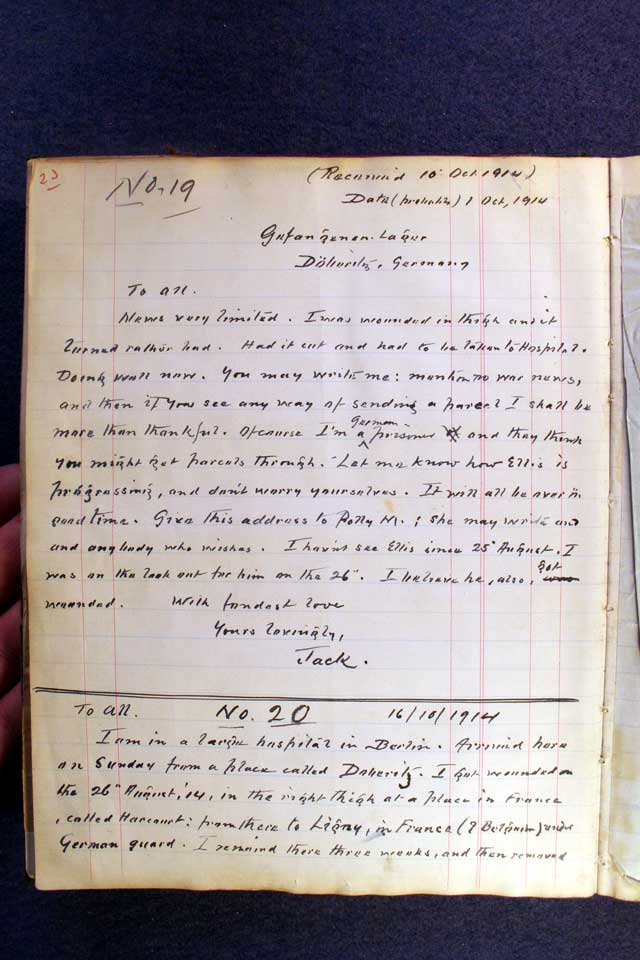 23
No. 19
(Received 10 Oct 1914)
Date (probably) 1 Oct, 1914
Gefangenen. Lager
Döberitz, Germany
To all.
News very limited. I was wounded in thigh and it
turned rather bad. Had it cut and had to be taken to Hospital.
Doing well now. You may write me: mention no war news,
and then if you see any way of sending a parcel I shall be
more than thankful. Of course I'm a German prisoner and they think
you might get parcels through. Let me know how Ellis is
progressing, and don't worry yourselves. It will all be over in
good time. Give this address to Polly M.; she may write and
and anybody who wishes. I havn't see Ellis since 25" August. I
was on the look out for him on the 26". I believe he, also, got
wounded. With fondest love
Yours lovingly,
Jack.
To all. No. 20 16/10/1914
I am in a large hospital in Berlin. Arrived here
on Sunday from a place called Doberitz. I got wounded on
the 26" August, '14, in the right thigh at a place in France
, called Harcourt: from there to Ligny, in France (? Belgium) under
German guard. I remained there three weeks, and then removed